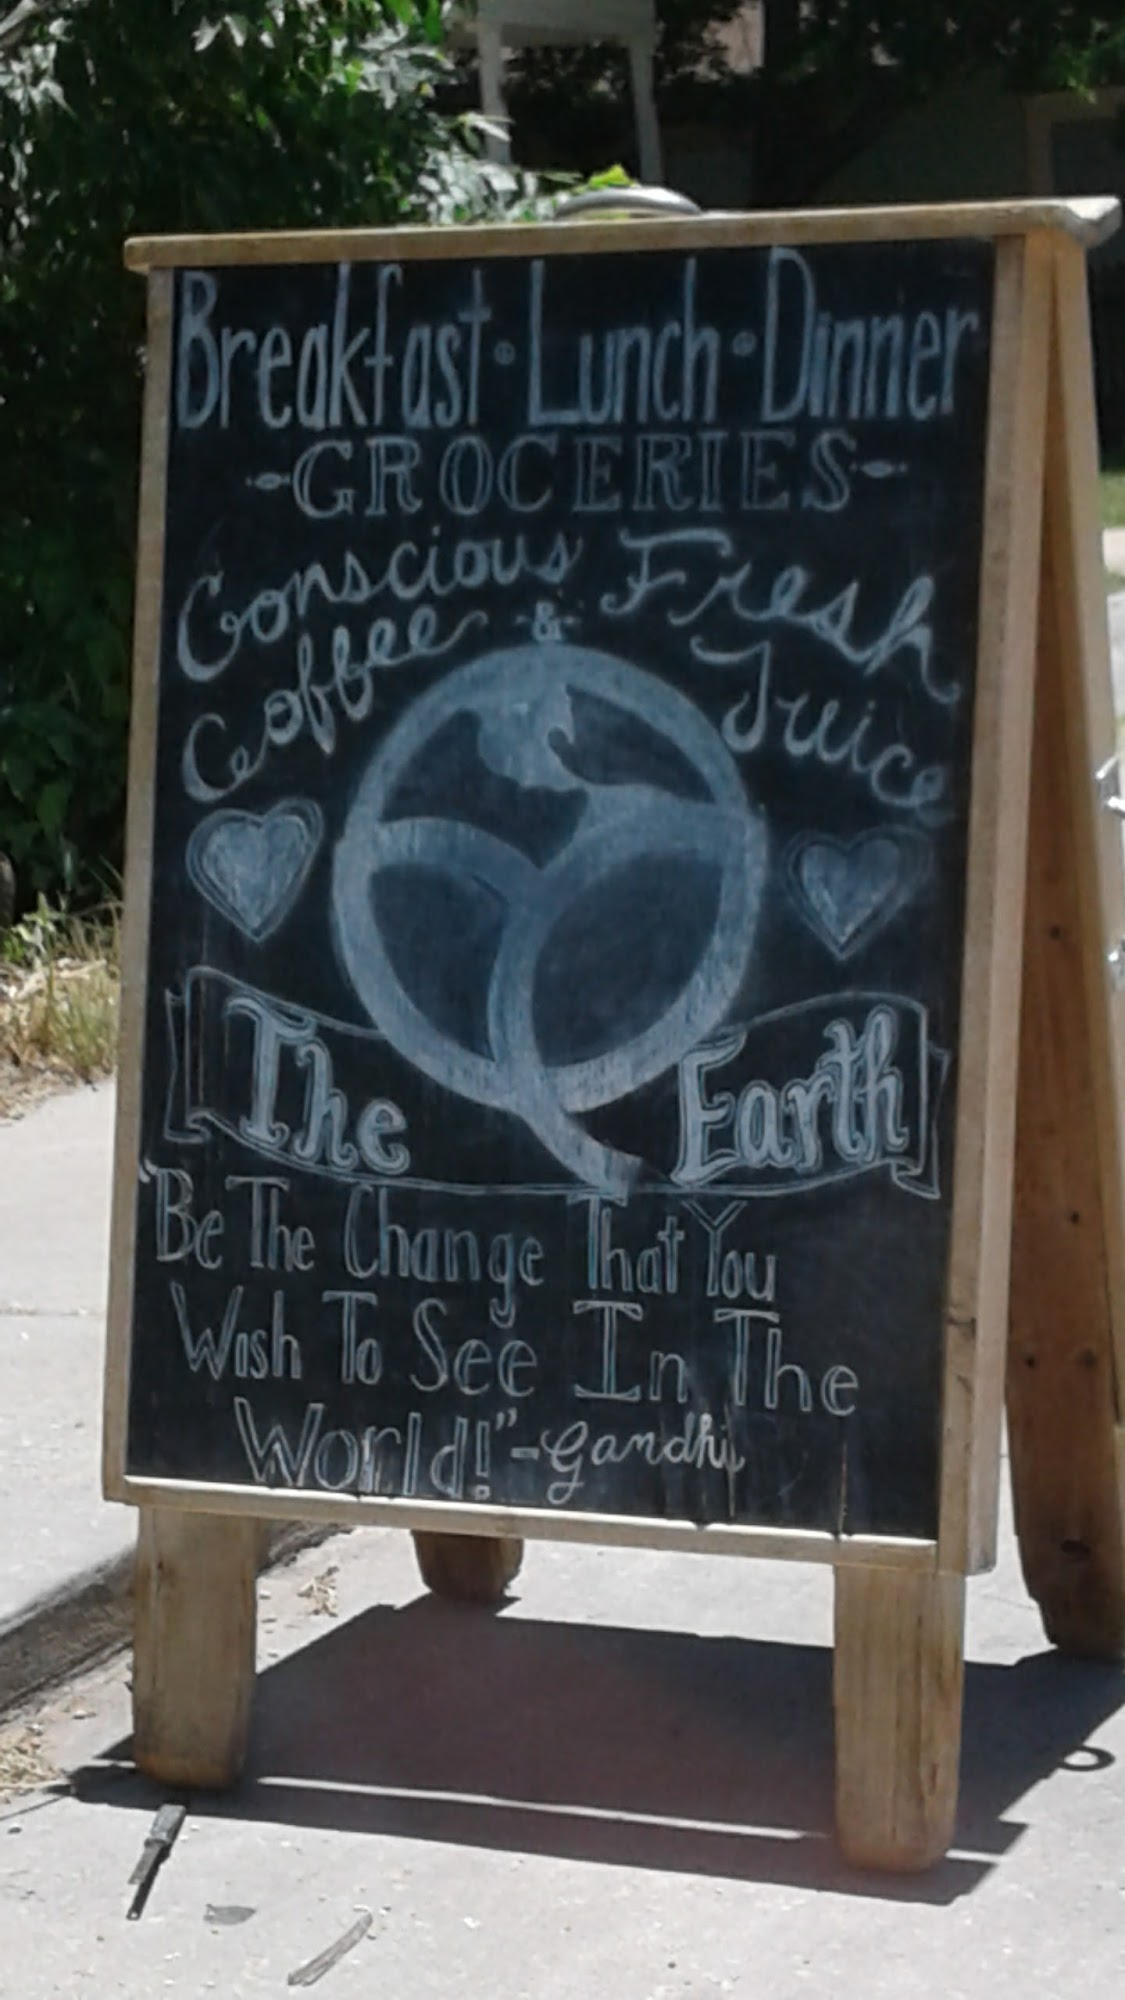 Breakfast • Lunch • Dinner
-GROCERIES-
Conscious
Coffee
-&-
Fresh
Juice
The Earth
"Be The Change That You
Wish To See In The
World!" -Gandhi